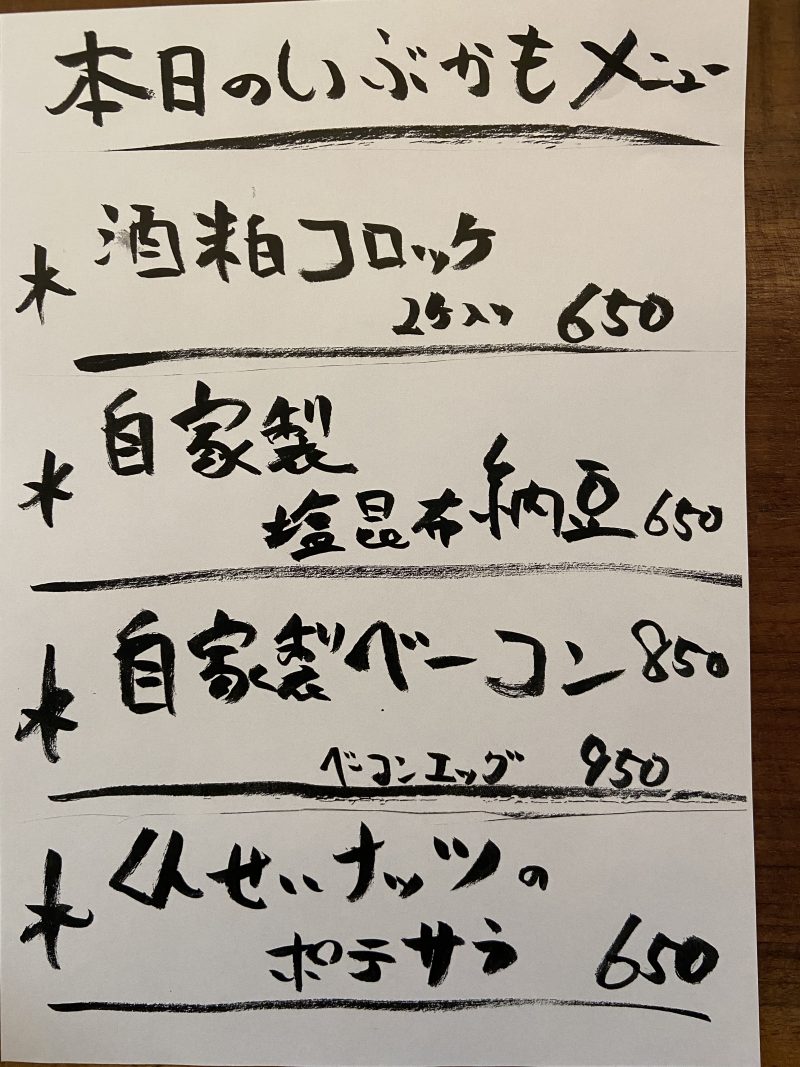 本日のいぶかもメニュー
* 酒粕コロッケ
2ケ入り 650
* 自家製
塩昆布納豆 650
* 自家製ベーコン 850
ベーコンエッグ 950
* くんせいナッツの
ポテサラ 650